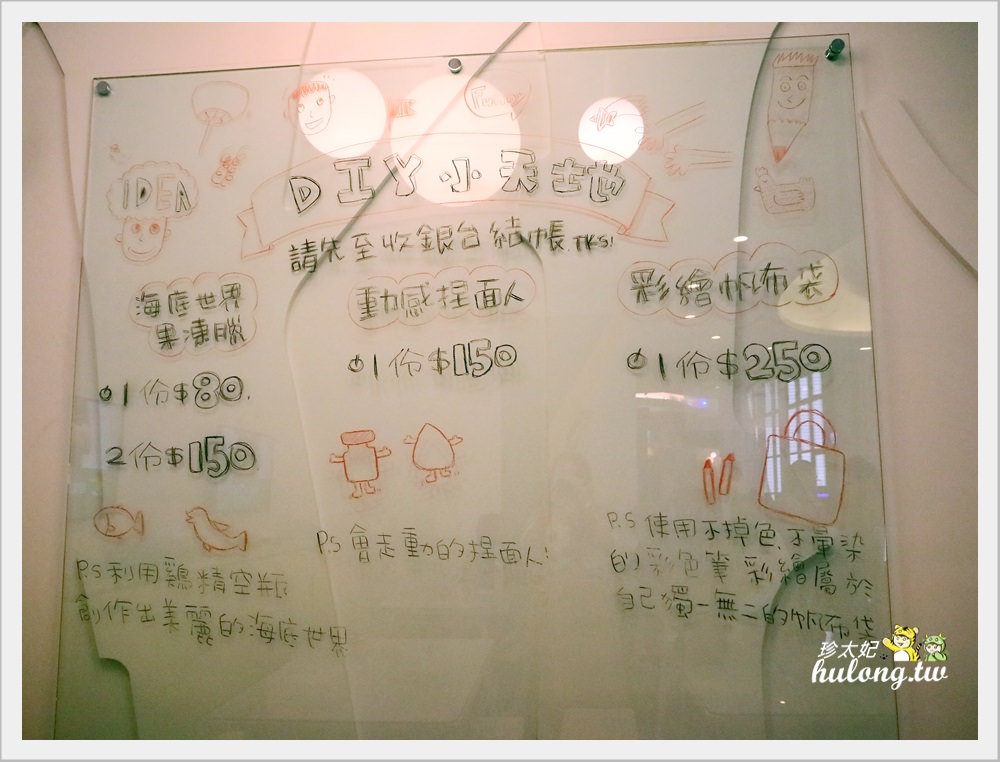 IDEA
DIY小天地
請先至收銀台結帳.TKS!
海底世界
果凍腦
1份$80.
2份$150
P.S利用鷄精空瓶
創作出美麗的海底世界
動感捏面人
1份$150
P.S會走動的捏面人!
彩繪帆布袋
1份$250
P.S使用不掉色.不暈染
的彩色筆彩繪屬於
自己獨一無二的帆布袋
珍太妃
hulong.tw